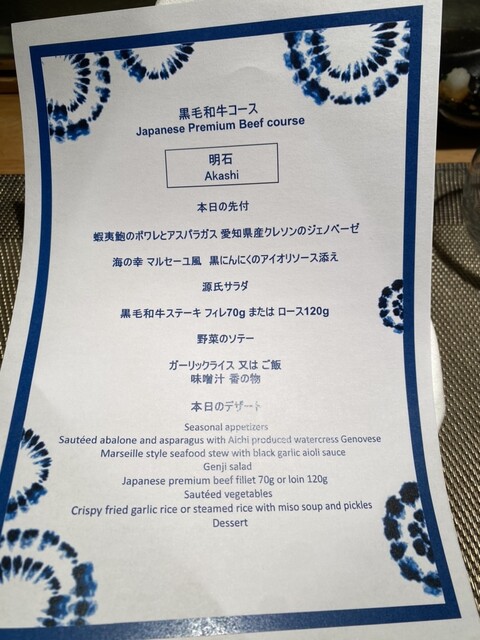 黒毛和牛コース
Japanese Premium Beef course
明石
Akashi
本日の先付
蝦夷鮑のポワレとアスパラガス 愛知県産クレソンのジェノベーゼ
海の幸 マルセーユ風 黒にんにくのアイオリソース添え
源氏サラダ
黒毛和牛ステーキ フィレ70g または ロース120g
野菜のソテー
ガーリックライス 又は ご飯
味噌汁 香の物
本日のデザート
Seasonal appetizers
Sautéed abalone and asparagus with Aichi produced watercress Genovese
Marseille style seafood stew with black garlic aioli sauce
Genji salad
Japanese premium beef fillet 70g or loin 120g
Sautéed vegetables
Crispy fried garlic rice or steamed rice with miso soup and pickles
Dessert